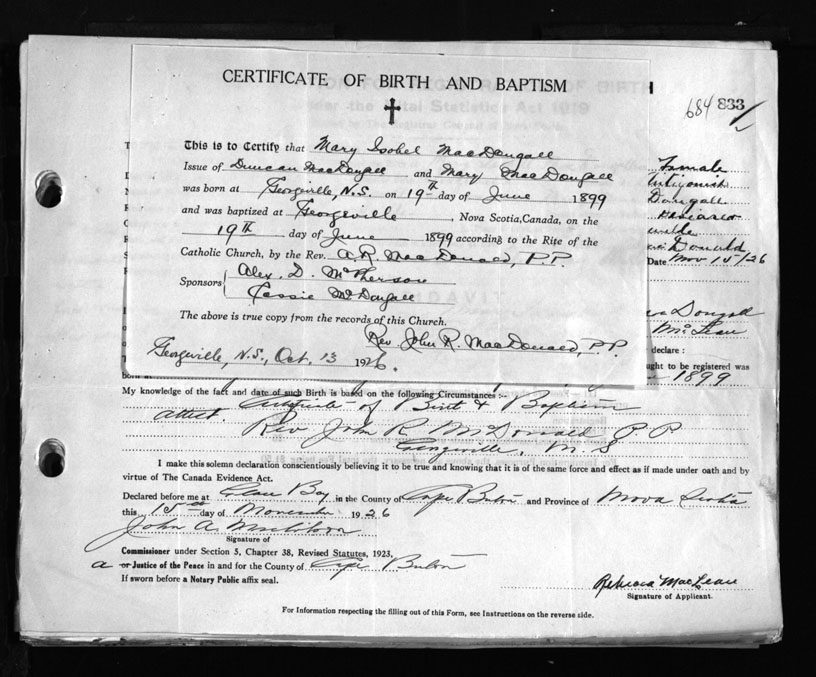 CERTIFICATE OF BIRTH AND BAPTISM
684 833
This is to Certify that Mary Isobel MacDougall
Issue of Duncan MacDougall and Mary MacDougall
was born at Georgeville, N.S. on 19th day of June 1899
and was baptized at Georgeville, Nova Scotia, Canada, on the
19th day of June 1899 according to the Rite of the
Catholic Church, by the Rev. A. R. MacDonald, P.P.
Sponsors Alex. D. McPherson
Cassie McDougall
The above is true copy from the records of this Church.
Rev. John R. MacDonald, P.P.
Georgeville, N.S., Oct. 13 1926.
Female
Antigonish
Dougall
Donald
Date Nov 15/26
Dougall
McLean
declare :
ught to be registered was
1899
My knowledge of the fact and date of such Birth is based on the following Circumstances :-
Certificate of Birth & Baptism
attest. Rev John R McDonald P.P.
Georgeville, N.S
I make this solemn declaration conscientiously believing it to be true and knowing that it is of the same force and effect as if made under oath and by
virtue of The Canada Evidence Act.
Declared before me at Glace Bay in the County of Cape Breton and Province of Nova Scotia
this 15 day of November 1926
John A.
Signature of
Commissioner under Section 5, Chapter 38, Revised Statutes, 1923,
a or Justice of the Peace in and for the County of Cape Breton
If sworn before a Notary Public affix seal.
Rebecca MacLean
Signature of Applicant.
For Information respecting the filling out of this Form, see Instructions on the reverse side.